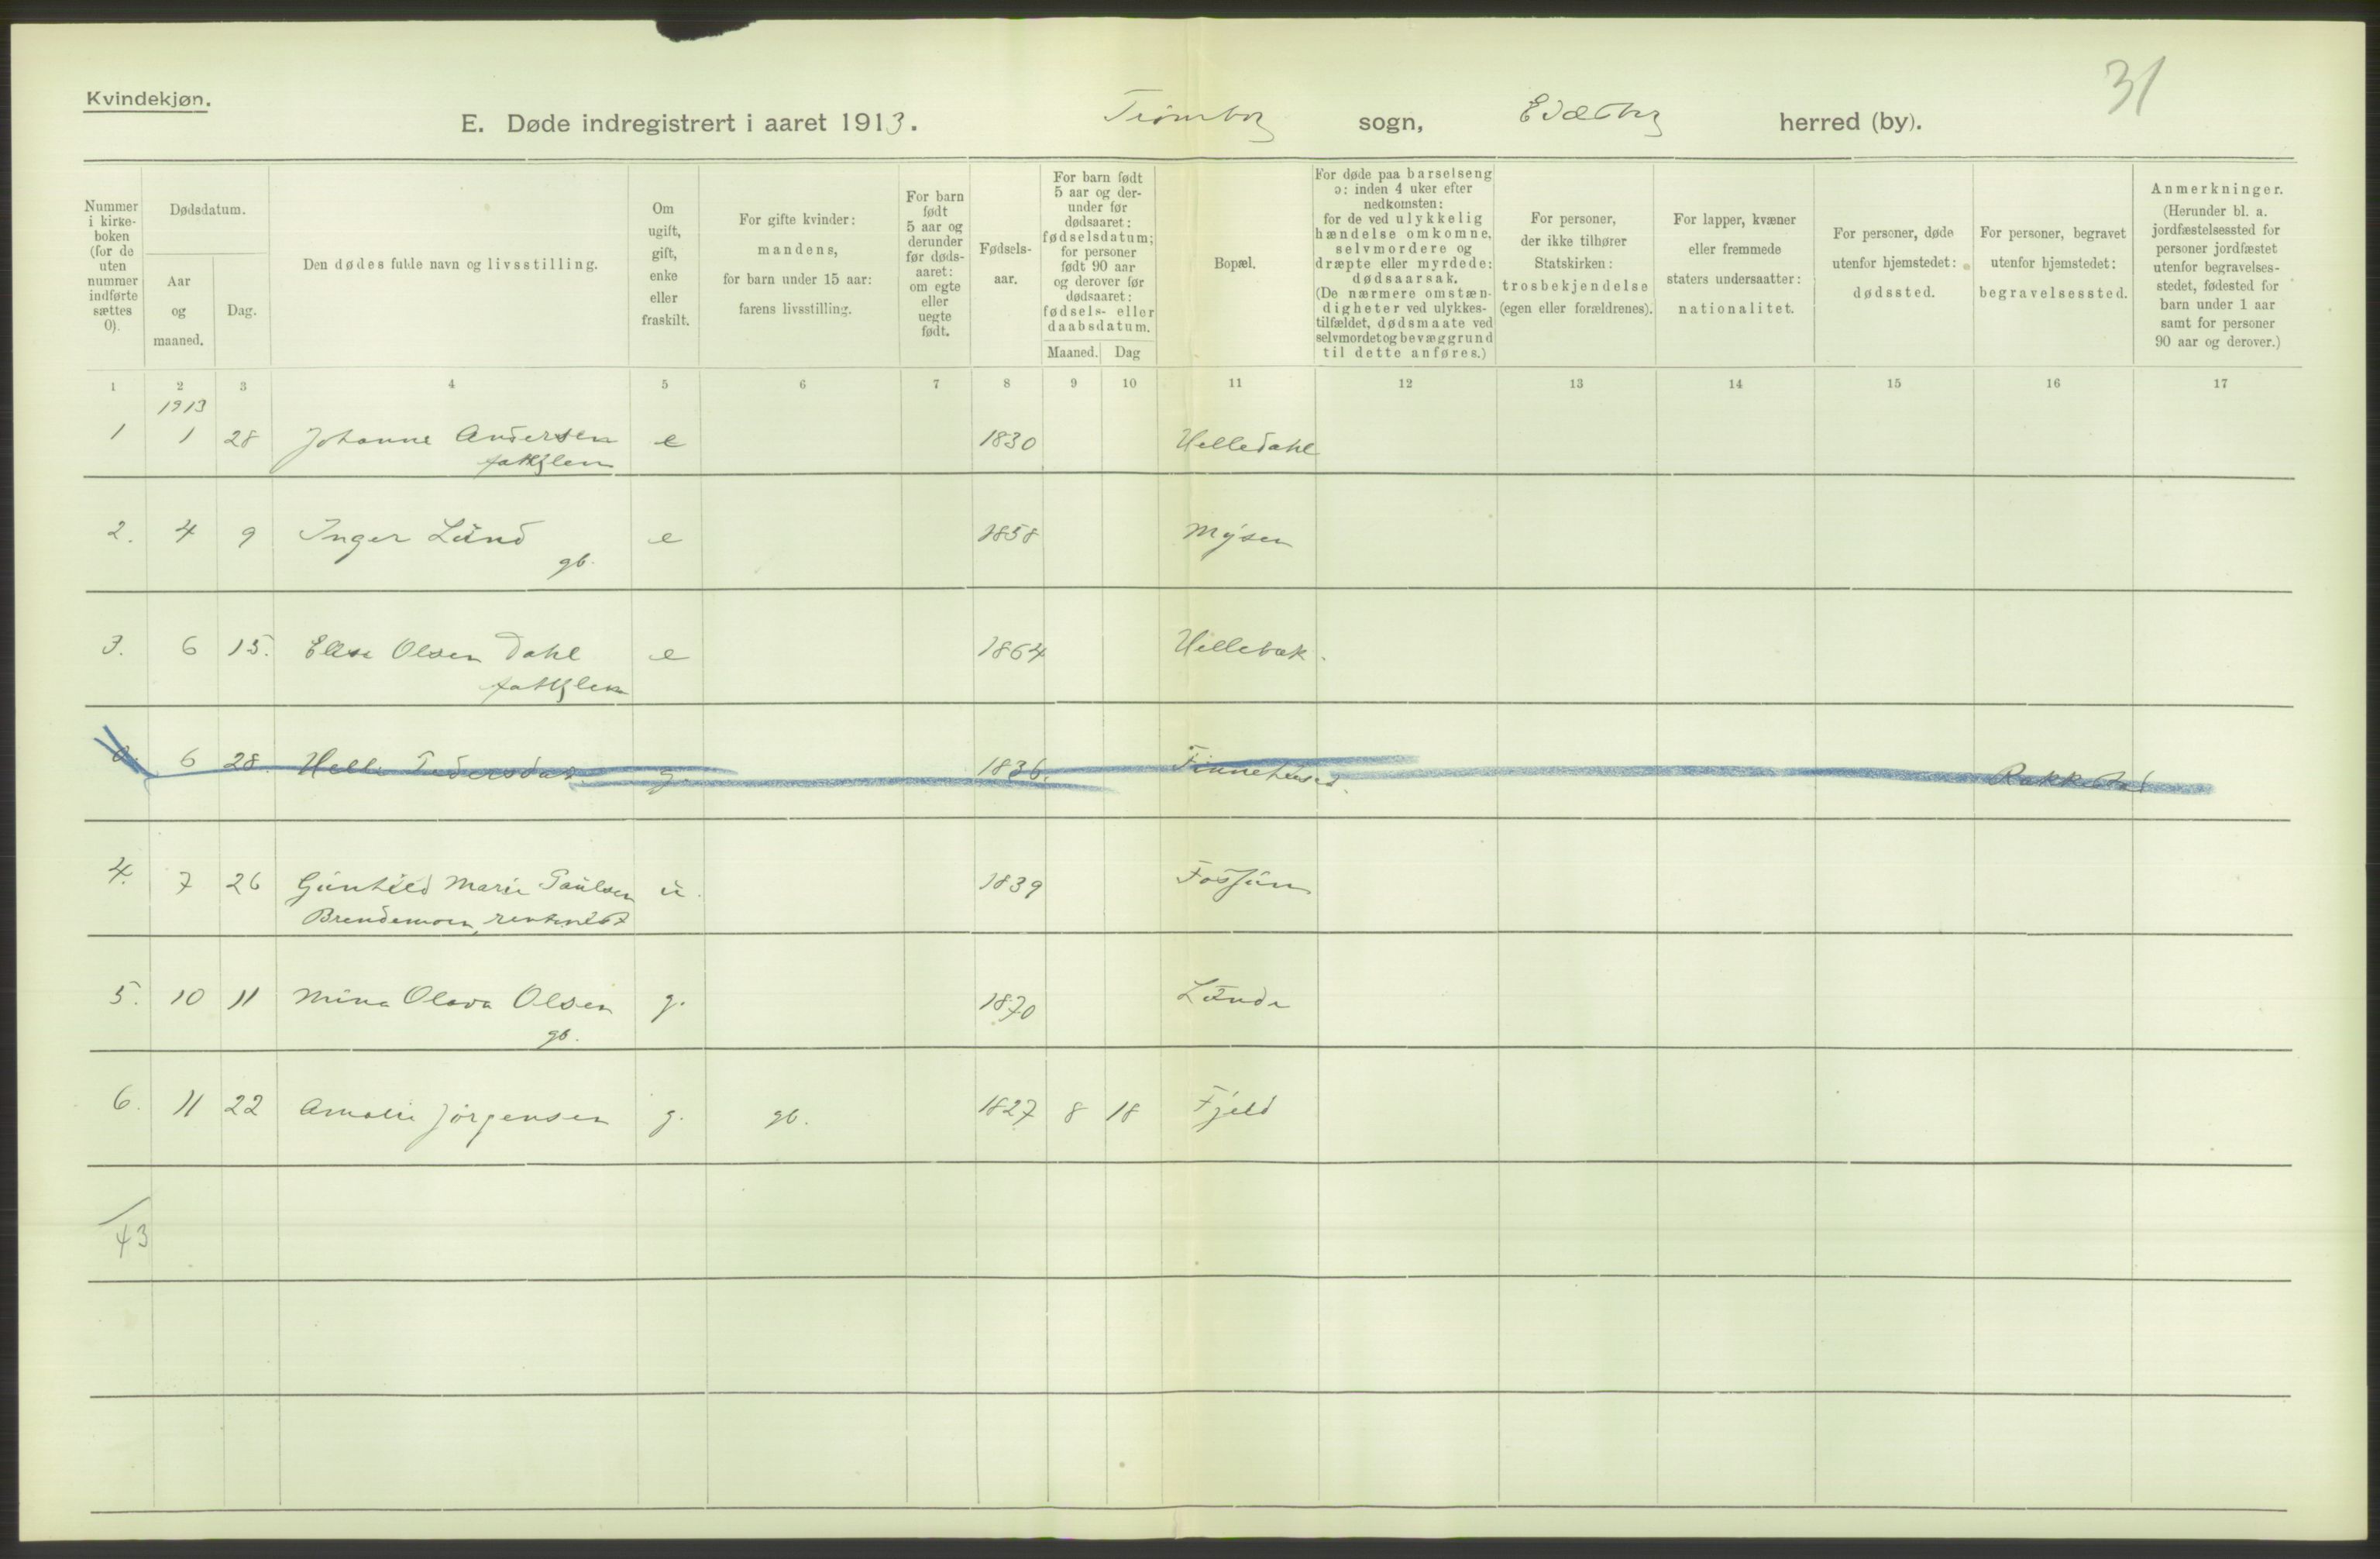 31
Kvindekjøn.
E. Døde indregistrert i aaret 1913. Trømborg sogn, Eidsberg herred (by).
Nummer i kirke- boken (for de uten nummer indførte sættes 0).
Dødsdatum.
Aar og maaned.
Dag.
Den dødes fulde navn og livsstilling.
Om ugift, gift, enke eller fraskilt.
For gifte kvinder: mandens, for barn under 15 aar: farens livsstilling.
For barn født 5 aar og derunder før døds- aaret: om egte eller uegte født.
Fødsels- aar.
For barn født 5 aar og der- under før dødsaaret: fødselsdatum; for personer født 90 aar og derover før dødsaaret: fødsels- eller daabsdatum.
Maaned. Dag
Bopæl.
For døde paa barselseng ɔ: inden 4 uker efter nedkomsten: for de ved ulykkelig hændelse omkomne, selvmordere og dræpte eller myrdede: dødsaarsak. (De nærmere omstæn- digheter ved ulykkes- tilfældet, dødsmaate ved selvmordet og bevæggrund til dette anføres.)
For personer, der ikke tilhører Statskirken: trosbekjendelse (egen eller forældrenes).
For lapper, kvæner eller fremmede staters undersaatter: nationalitet.
For personer, døde utenfor hjemstedet: dødssted.
For personer, begravet utenfor hjemstedet: begravelsessted.
Anmerkninger. (Herunder bl. a. jordfæstelsessted for personer jordfæstet utenfor begravelses- stedet, fødested for barn under 1 aar samt for personer 90 aar og derover.)
1 2 3 4 5 6 7 8 9 10 11 12 13 14 15 16 17
1913
1 1 28 Johanne Andersen e 1830 Helledahl
fattiglem
2. 4 9 Inger Lund e 1858 Mysen
gb.
3. 6 15. Else Olsen Dahl e 1864 Hellebæk.
fattiglem
0. 6 28. Helle Pedersdat. g. 1836. Rakkestad
4. 7 26 Gunhild Marie Paulsen u. 1839 Fossum
Brendemoen,
5. 10 11 Mina Olava Olsen g. 1870 Lunde
gb.
6. 11 22 Amalie Jørgensen g. gb. 1827 8 18 Fjeld
43